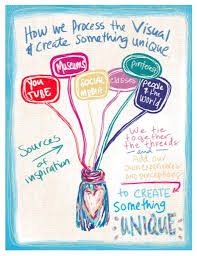 How we Process the Visual
& create something unique
Museums
Pinterest
YOU
TUBE
SOCIAL
MEDIA
classes
PEOPLE
the
World
Sources
of
inspiration
We tie
together
the threads
and
Add our
own experiences
and perceptions
to CREATE
something
UNIQUE